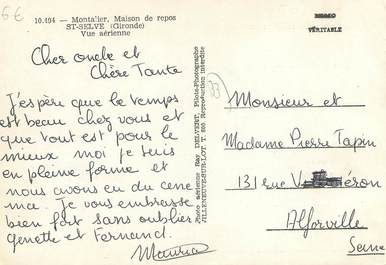 6€
10.494 - Montalier, Maison de repos
ST-SELVE (Gironde)
Vue aérienne
VÉRITABLE
Cher oncle et
Chère Tante
J'espère que le temps
est beau chez vous et
que tout est pour le
mieux moi je suis
en pleine forme et
nous avons eu du cine
ma. Je vous embrasse
bien fort sans oublier
Ginette et Fernand.
Photo aérienne Ray DELVERT, Pilote-Photographe
VILLENEUVE-SUR-LOT T. 800 Reproduction interdite
33
Monsieur et
Madame Pierre Tapin
131 rue
Alforville
Seine